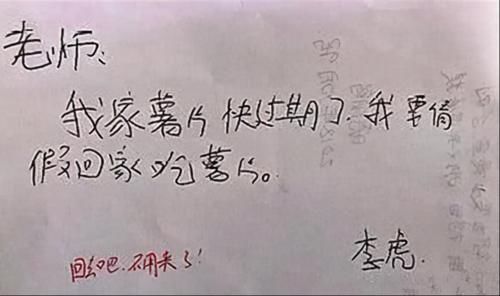 老师：
我家薯片快过期了.我要请
假回家吃薯片。
李虎.
回去吧.不用来了！